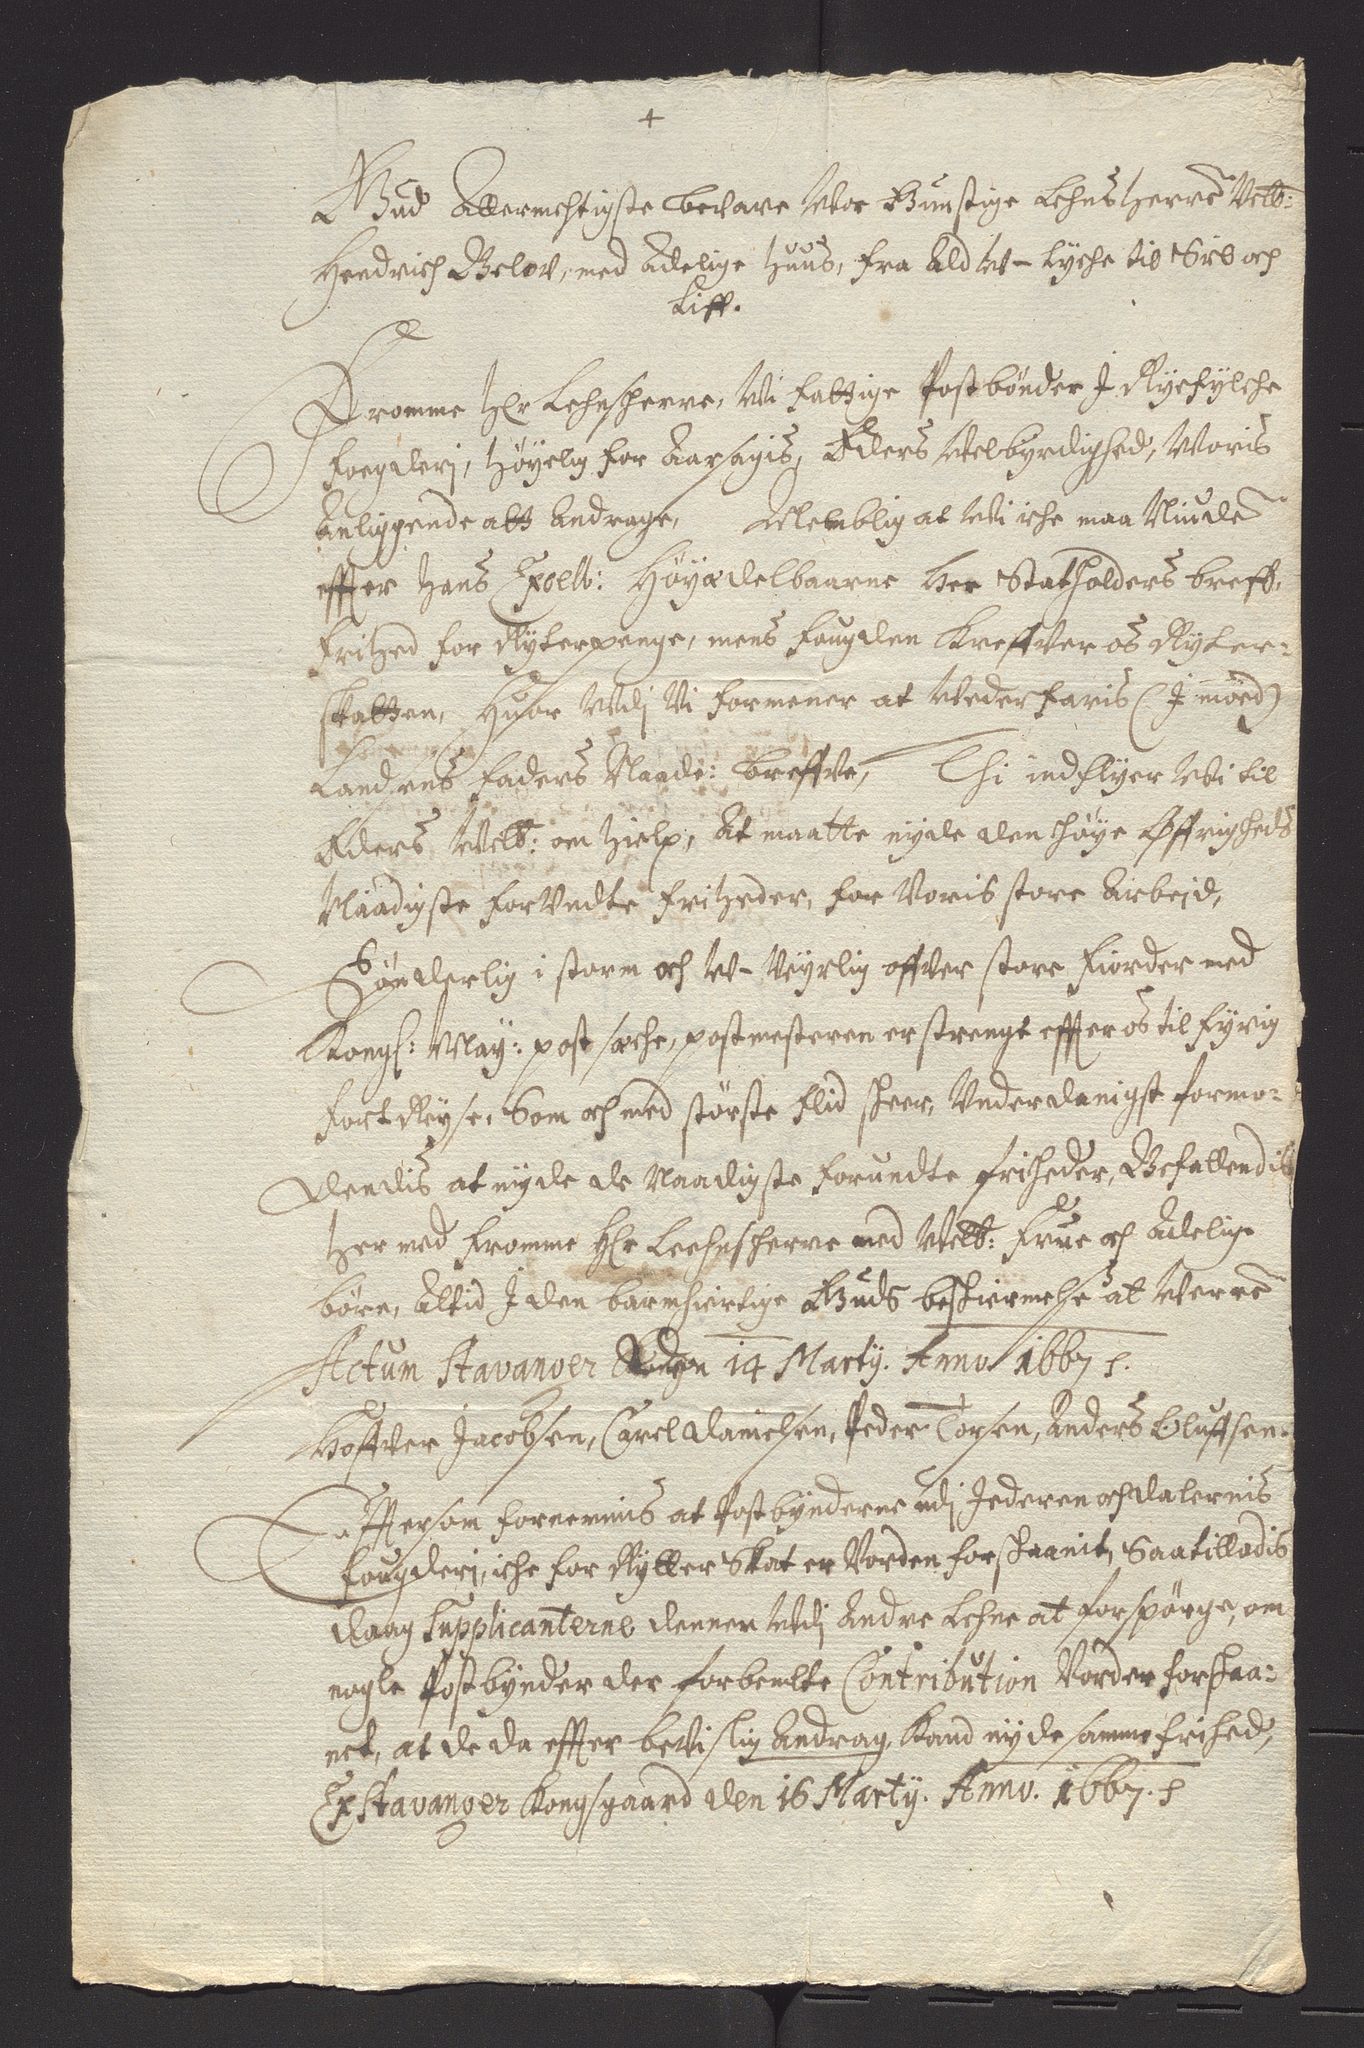 Gud Allermechtigste bevare Wor Gunstige Lehns Herre Velb:
Hendrich Belov, med Adelige Huus, fra Ald W-lyche til Siel och
Liff.
Fromme Hr Lehnsherre, Wi fattige Postbönder J Ryefylche
Foegderj, Höyelig for Aarsagis, Eders Velbyrdighed, Woris
Anliggende att Andrage, Nemblig at Wi iche maa Niude
effter Hans Excell: Höyædelbaarne Her Statholders breff,
frihed for Rytterpenge, mens fougden Kreffver os Rytter-
skatten, Huor Udj Vi formener at Wederfaris (J möed)
Landens faders Naade: breffve, Thi indflyer Wi til
Eders Velb: om Hielp, At maatte nyde den höye Øffrigheds
Naadigste forUndte friheder, for Voris store Arbejd,
Sönderlig i storm och W-Veyrlig offver store Fiorder med
Kongl: May: post sæche, postmesteren er strengt effter os til fyrig
fortReyse, Som och med störste flid skeer, Underdanigst formo-
dendis at nyde de Naadigste forundte friheder, Befallendis
Her med fromme Hr Leehnsherre med Velb: Frue och Adelige
börn, Altid J den barmhiertige Guds beskiermelse at Verre
Actum Stavanger 14 Martij. Anno 1667.
Hoffver Jacobsen, Carel Danielsen, Peder Torsen, Anders Oluffsen.
Effter som fornemmis at Postbynderne udj Jederen och Dalernis
fougderj, iche for Rytter Skat er Vorden forskaanit, Saa tilladis
daag Supplicanterne dennem Udj Andre Lehne at forspörge, om
nogle Postbynder der forbemte Contribution Vorder forskaa-
net, at de da effter bevislig Andrag, Kand nyde samme frihed,
Ex Stavanger Kongsgaard den 16 Martij. Anno. 1667.